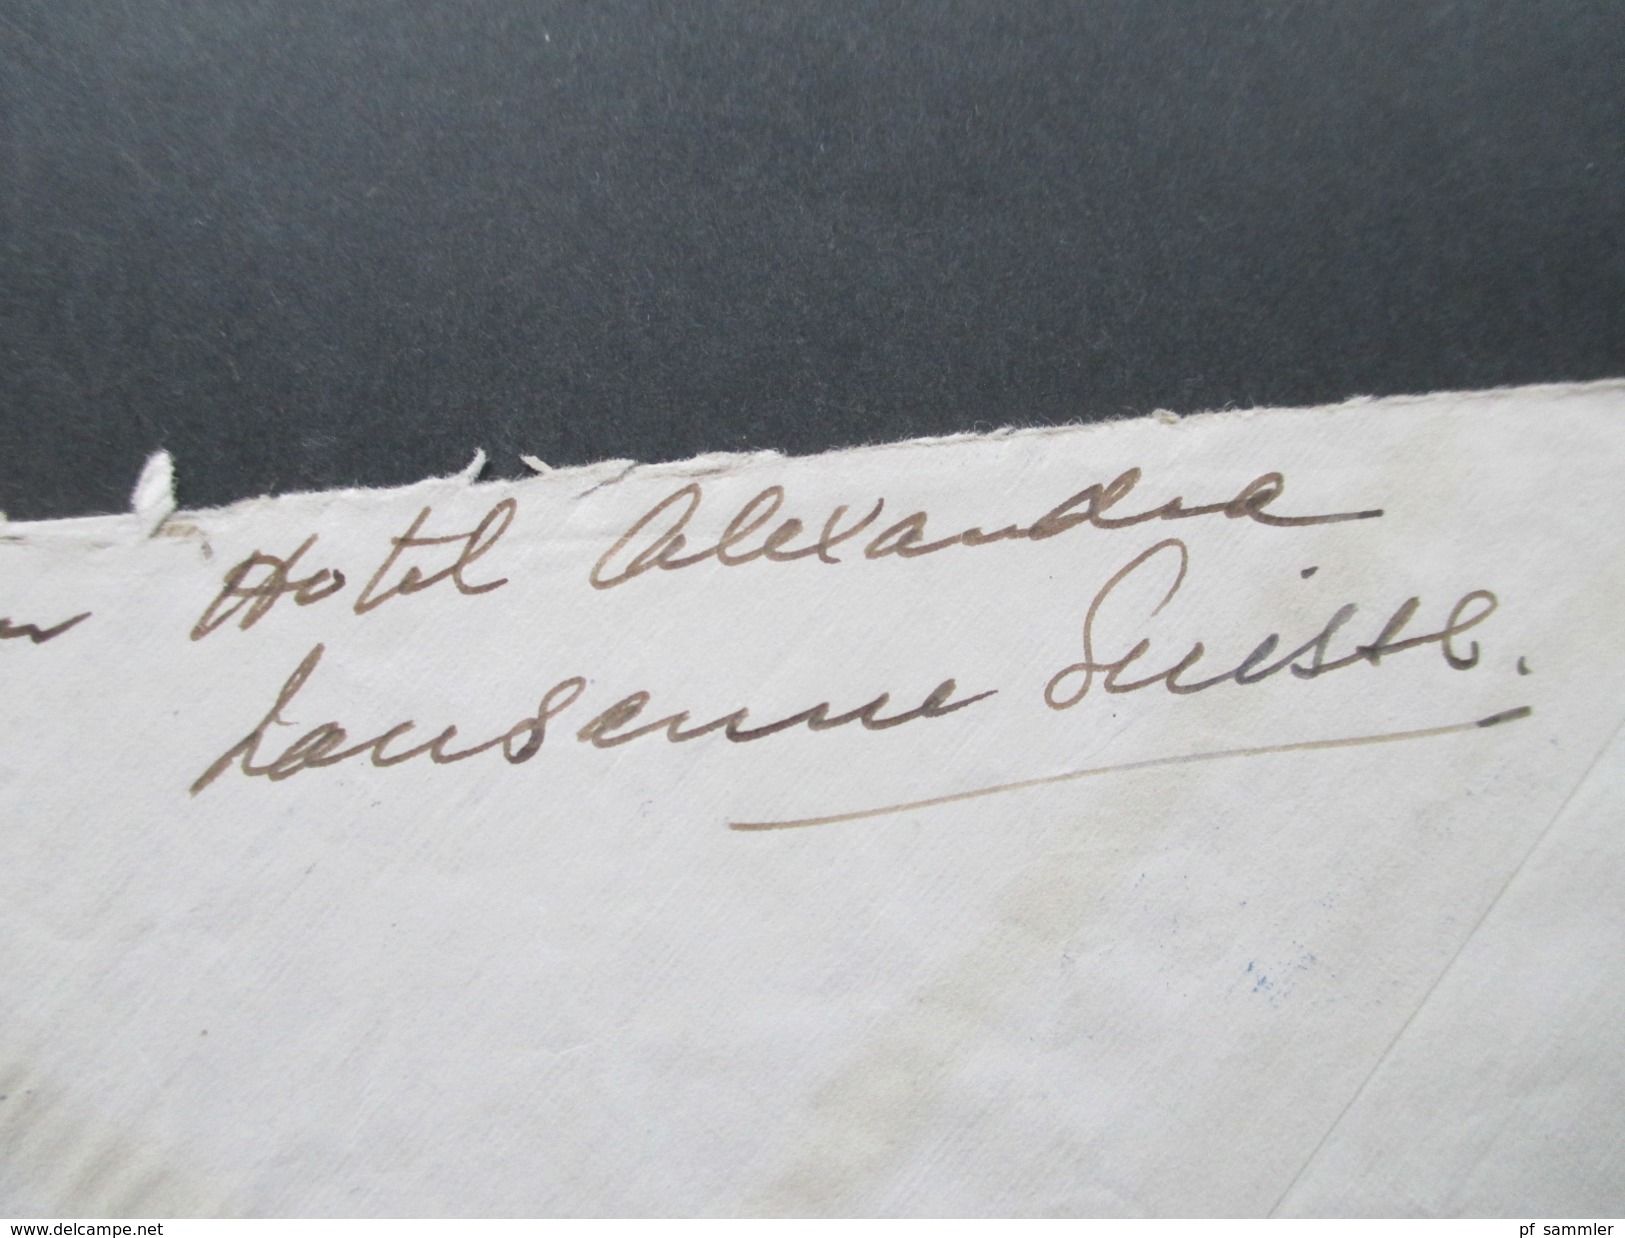 Hotel Alexandra
Lausanne Suisse.
www.delcampe.net
pf_sammler